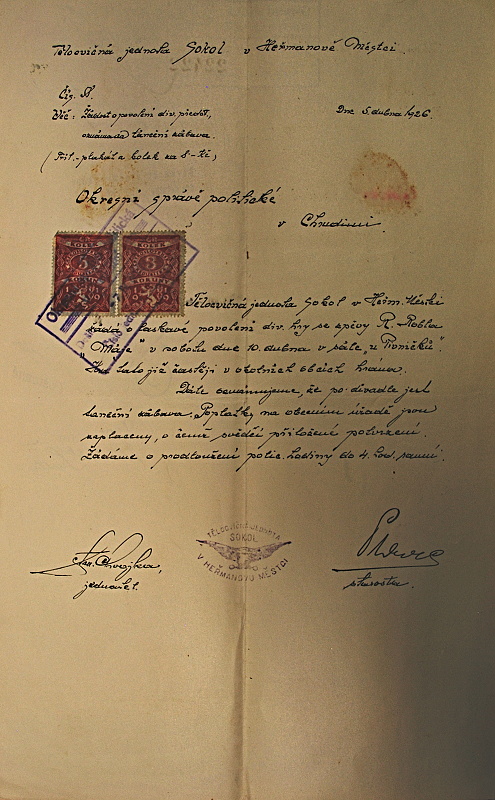 Tělocvičná jednota Sokol v Heřmanově Městci.
Čís.
Dne 5. dubna 1926.
Věc: Žádost o povolení div. předst.,
oznámení taneční zábava.
(Příl.- plakát a kolek za 8-Kč)
Okresní správě politické
v Chrudimi.
Tělocvičná jednota Sokol v Heřm. Městci
žádá o laskavé povolení div. hry se zpěvy R.
"Máje" v sobotu dne 10. dubna v sále "u".
Hra tato již častěji v okolních obcích hrána.
Dále oznamujeme, že po divadle jest
taneční zábava. Poplatky na obecním úřadě jsou
zaplaceny, o čemž svědčí přiložené potvrzení.
Žádáme o prodloužení polic. hodiny do 4. hod. ranní.
TĚLOCVIČNÁ JEDNOTA
SOKOL
V HEŘMANOVU MĚSTCI
jednatel.
starosta.